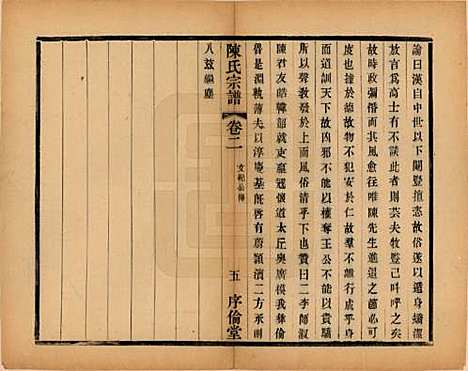 論曰漢自中世以下閹豎擅恣故俗遂以遁身矯潔
放言爲高士有不談此者則芸夫牧豎已叫呼之矣
故時政彌惛而其風愈往唯陳先生進退之節必可
度也據於德故物不犯安於仁故羣不離行成乎身
而道訓天下故凶邪不能以權奪王公不能以貴驕
所以聲教發於上而風俗清乎下也贊曰二李師淑
陳君友皓韓韶就吏嬴寇懷道太丘奧廣模我彝倫
曾是淵軌薄夫以淳慶基既啓有蔚潁濱二方承則
八茲繼塵
陳氏宗譜 卷二 公傳 五 序倫堂